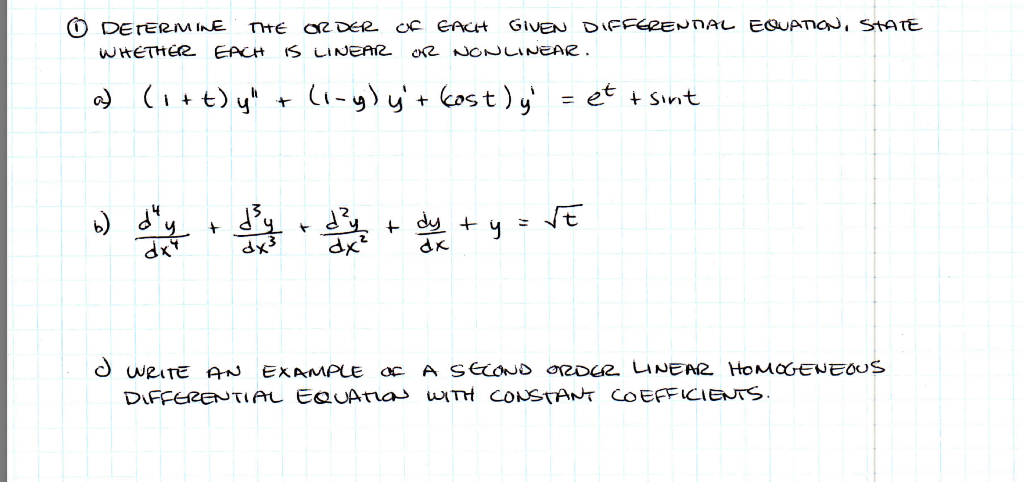 ① DETERMINE THE ORDER OF EACH GIVEN DIFFERENTIAL EQUATION, STATE
WHETHER EACH IS LINEAR OR NONLINEAR.
a) (1+t)y" + (1-y)y' + (cost)y' = e^t + sint
b) d⁴y/dx⁴ + d³y/dx³ + d²y/dx² + dy/dx + y = √t
c) WRITE AN EXAMPLE OF A SECOND ORDER LINEAR HOMOGENEOUS
DIFFERENTIAL EQUATION WITH CONSTANT COEFFICIENTS.